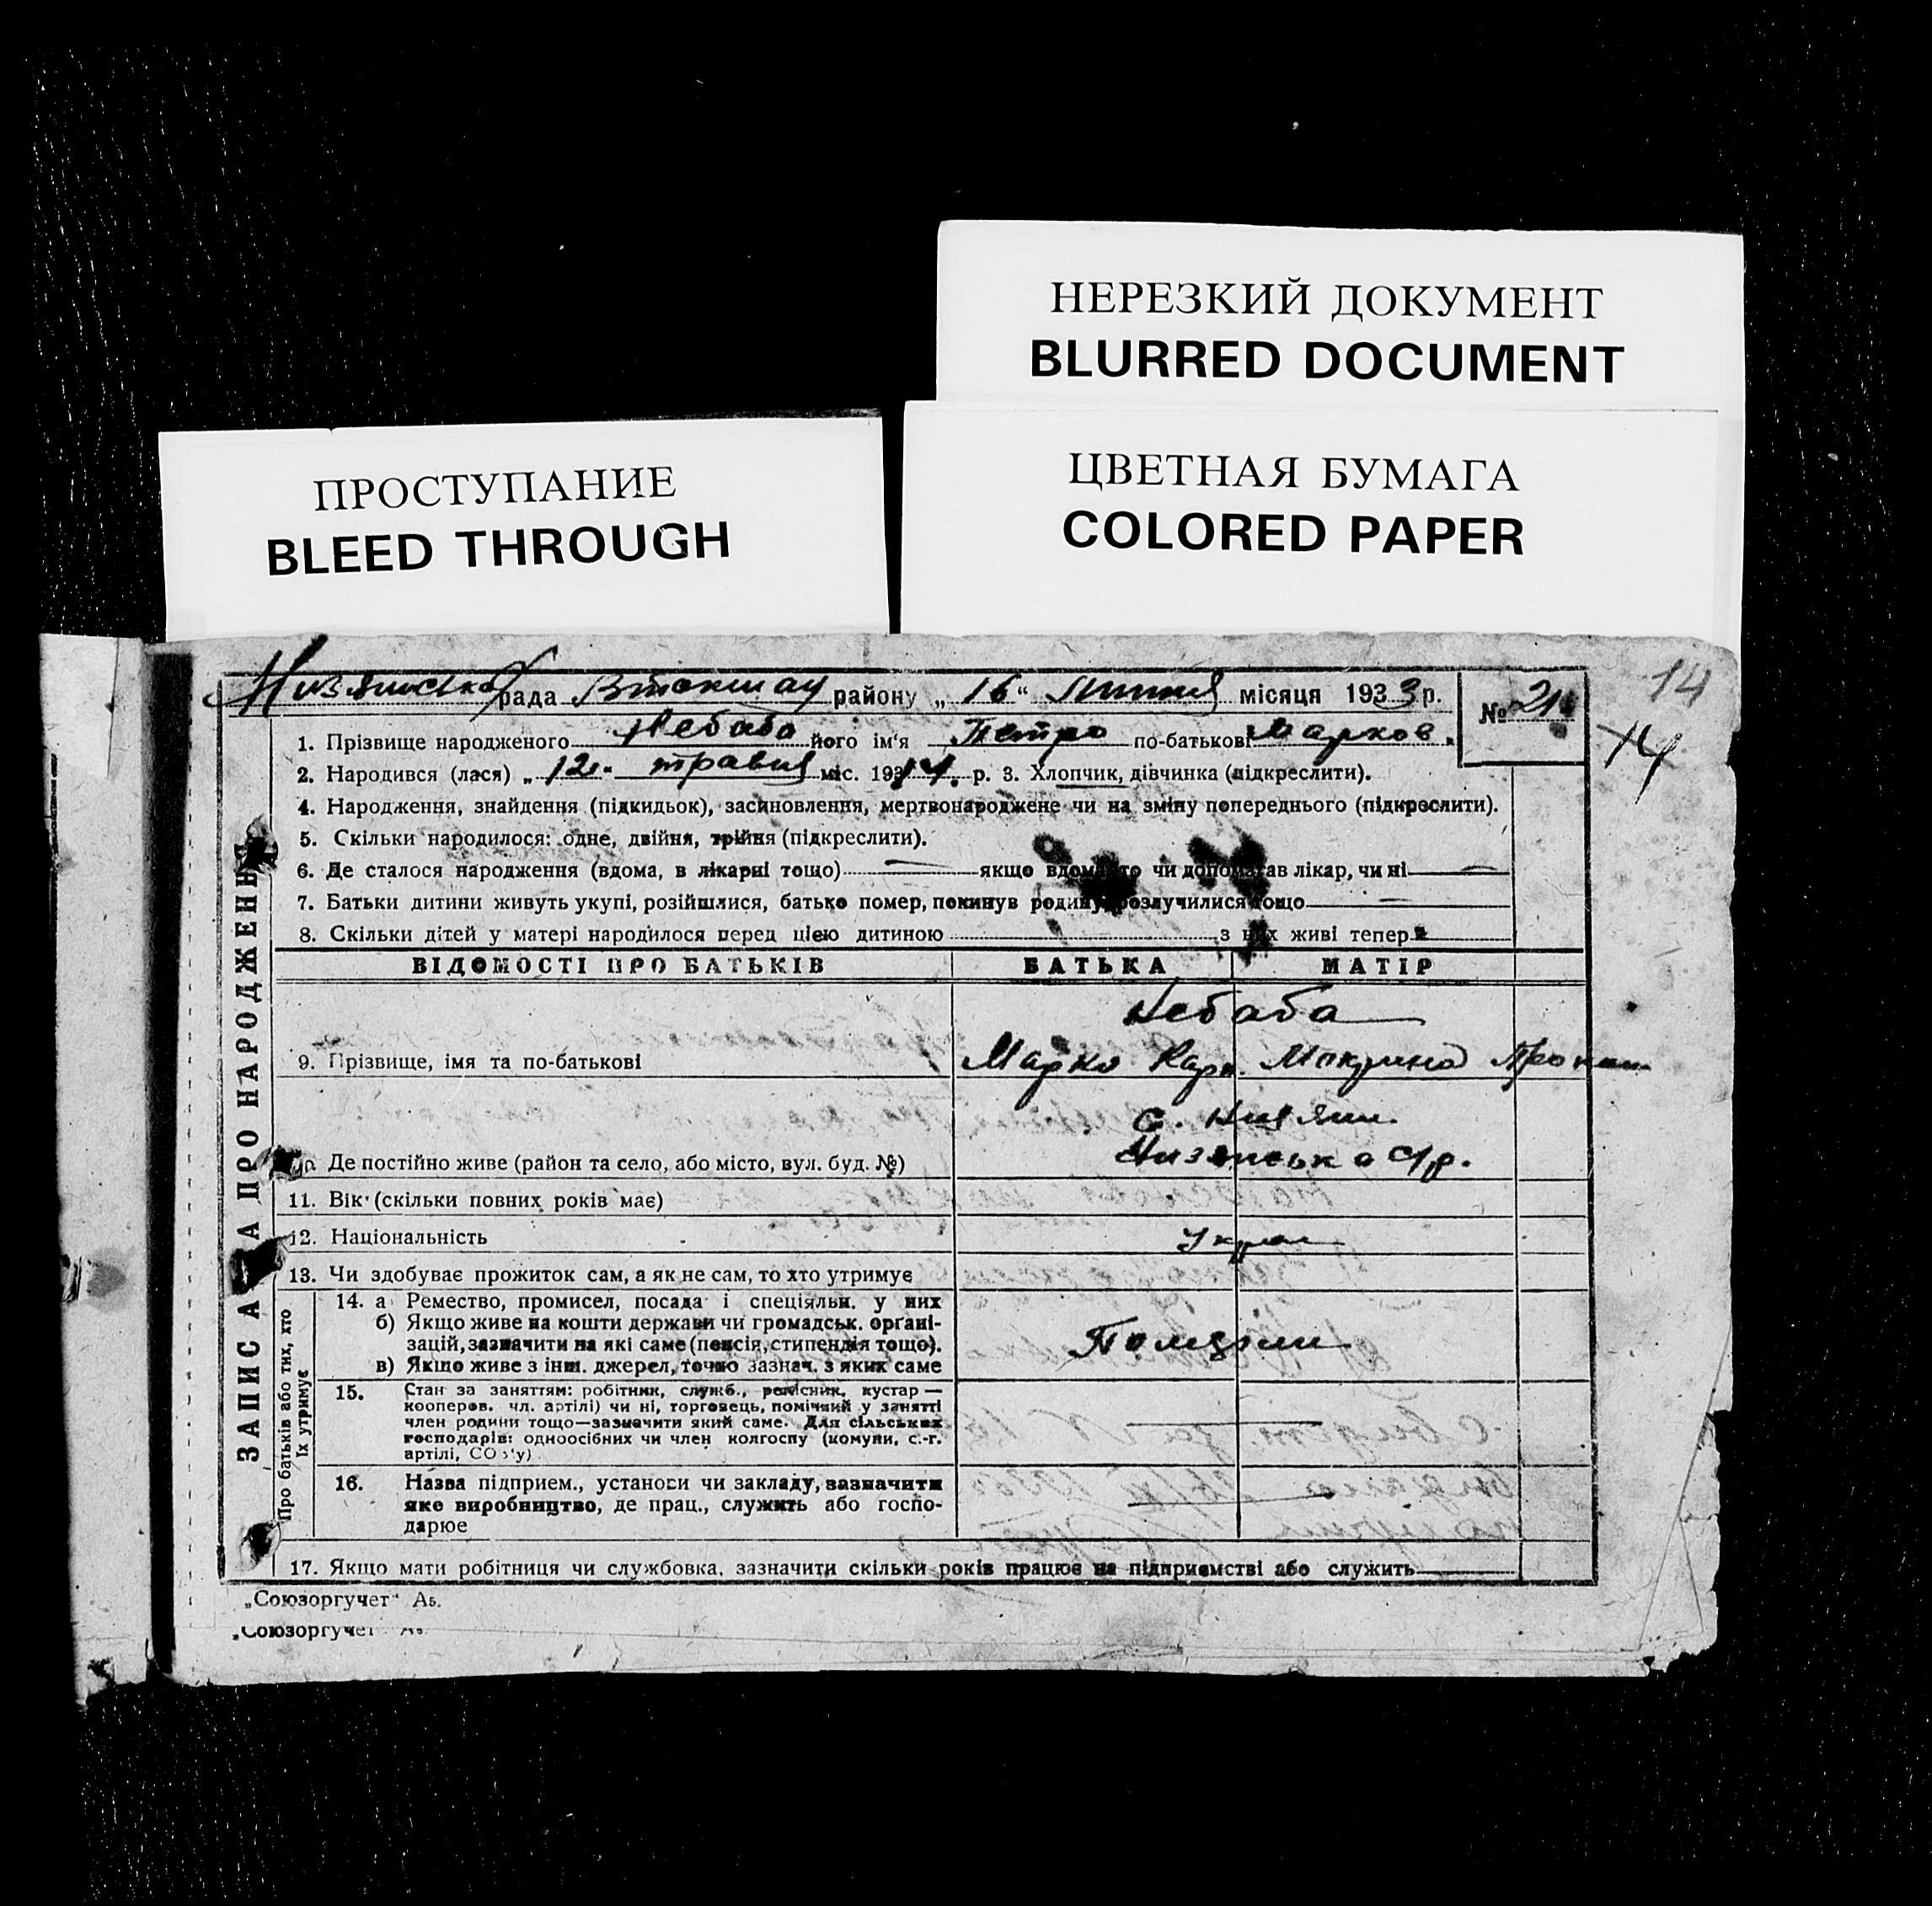 НЕРЕЗКИЙ ДОКУМЕНТ
BLURRED DOCUMENT
ПРОСТУПАНИЕ
BLEED THROUGH
ЦВЕТНАЯ БУМАГА
COLORED PAPER
14
рада району „16“ місяця 1933 р. №
14
1. Прізвище народженого Небаба його ім'я Петро по-батькові Марков.
2. Народився (лася) „12“ травня міс. 1914. р. 3. Хлопчик, дівчинка (підкреслити).
4. Народження, знайдення (підкидьок), засиновлення, мертвонароджене чи на зміну попереднього (підкреслити).
5. Скільки народилося: одне, двійня, трійня (підкреслити).
6. Де сталося народження (вдома, в лікарні тощо) — якщо вдома то чи допомагав лікар, чи ні —
7. Батьки дитини живуть укупі, розійшлися, батько помер, покинув родину, розлучилися тощо —
8. Скільки дітей у матері народилося перед цією дитиною з них живі тепер
ВІДОМОСТІ ПРО БАТЬКІВ БАТЬКА МАТІР
Небаба
9. Прізвище, імя та по-батькові Марко Карп. Макрина Прокоп
с.
10. Де постійно живе (район та село, або місто, вул. буд. №)
11. Вік (скільки повних років має)
12. Національність Укра
13. Чи здобуває прожиток сам, а як не сам, то хто утримує
14. а Ремество, промисел, посада і спеціяльн. у них
б) Якщо живе на кошти держави чи громадськ. органі-
зацій, зазначити на які саме (пенсія, стипендія тощо).
в) Якщо живе з інш. джерел, точно зазнач. з яких саме
15. Стан за заняттям: робітник, служб., ремісник, кустар —
кооперов. чл. артілі) чи ні, торговець, помічний у занятті
член родини тощо—зазначити який саме. Для сільських
господарів: одноосібних чи член колгоспу (комуни, с.-г.
артілі, СОЗ'у)
16. Назва підприєм., установи чи закладу, зазначити
яке виробництво, де прац., служить або госпо-
дарює
17. Якщо мати робітниця чи службовка, зазначити скільки років працює на підприємстві або служить
ЗАПИС А ПРО НАРОДЖЕННЯ
Про батьків або тих, хто
їх утримує
„Союзоргучет“ Аб.
„Союзоргучет